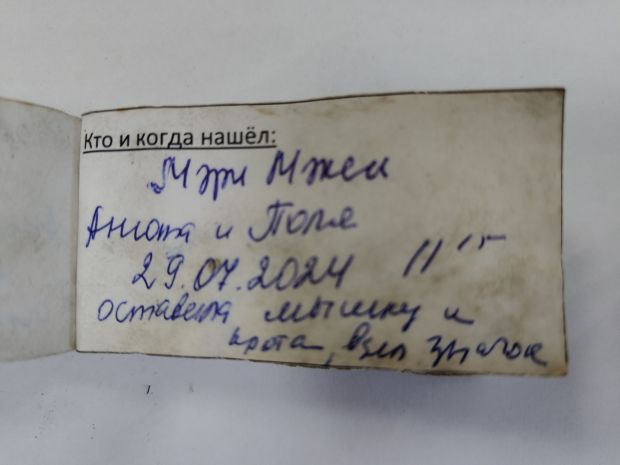 Кто и когда нашёл:
Мэри Мжеи
и Поля
29.07.2024 11 15
оставила мышку и
крота, взял значок